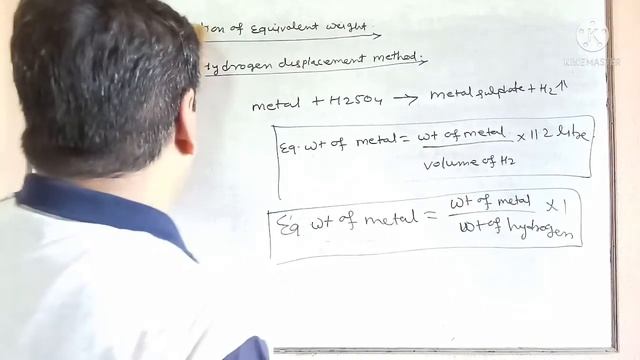 tion of Equivalent weight.
Hydrogen displacement method:
metal + H2SO4 → metal sulphate + H2↑
Eq. wt of metal = wt of metal / volume of H2 × 11.2 litre
Eq wt of metal = wt of metal / wt of hydrogen × 1
KINEMASTER